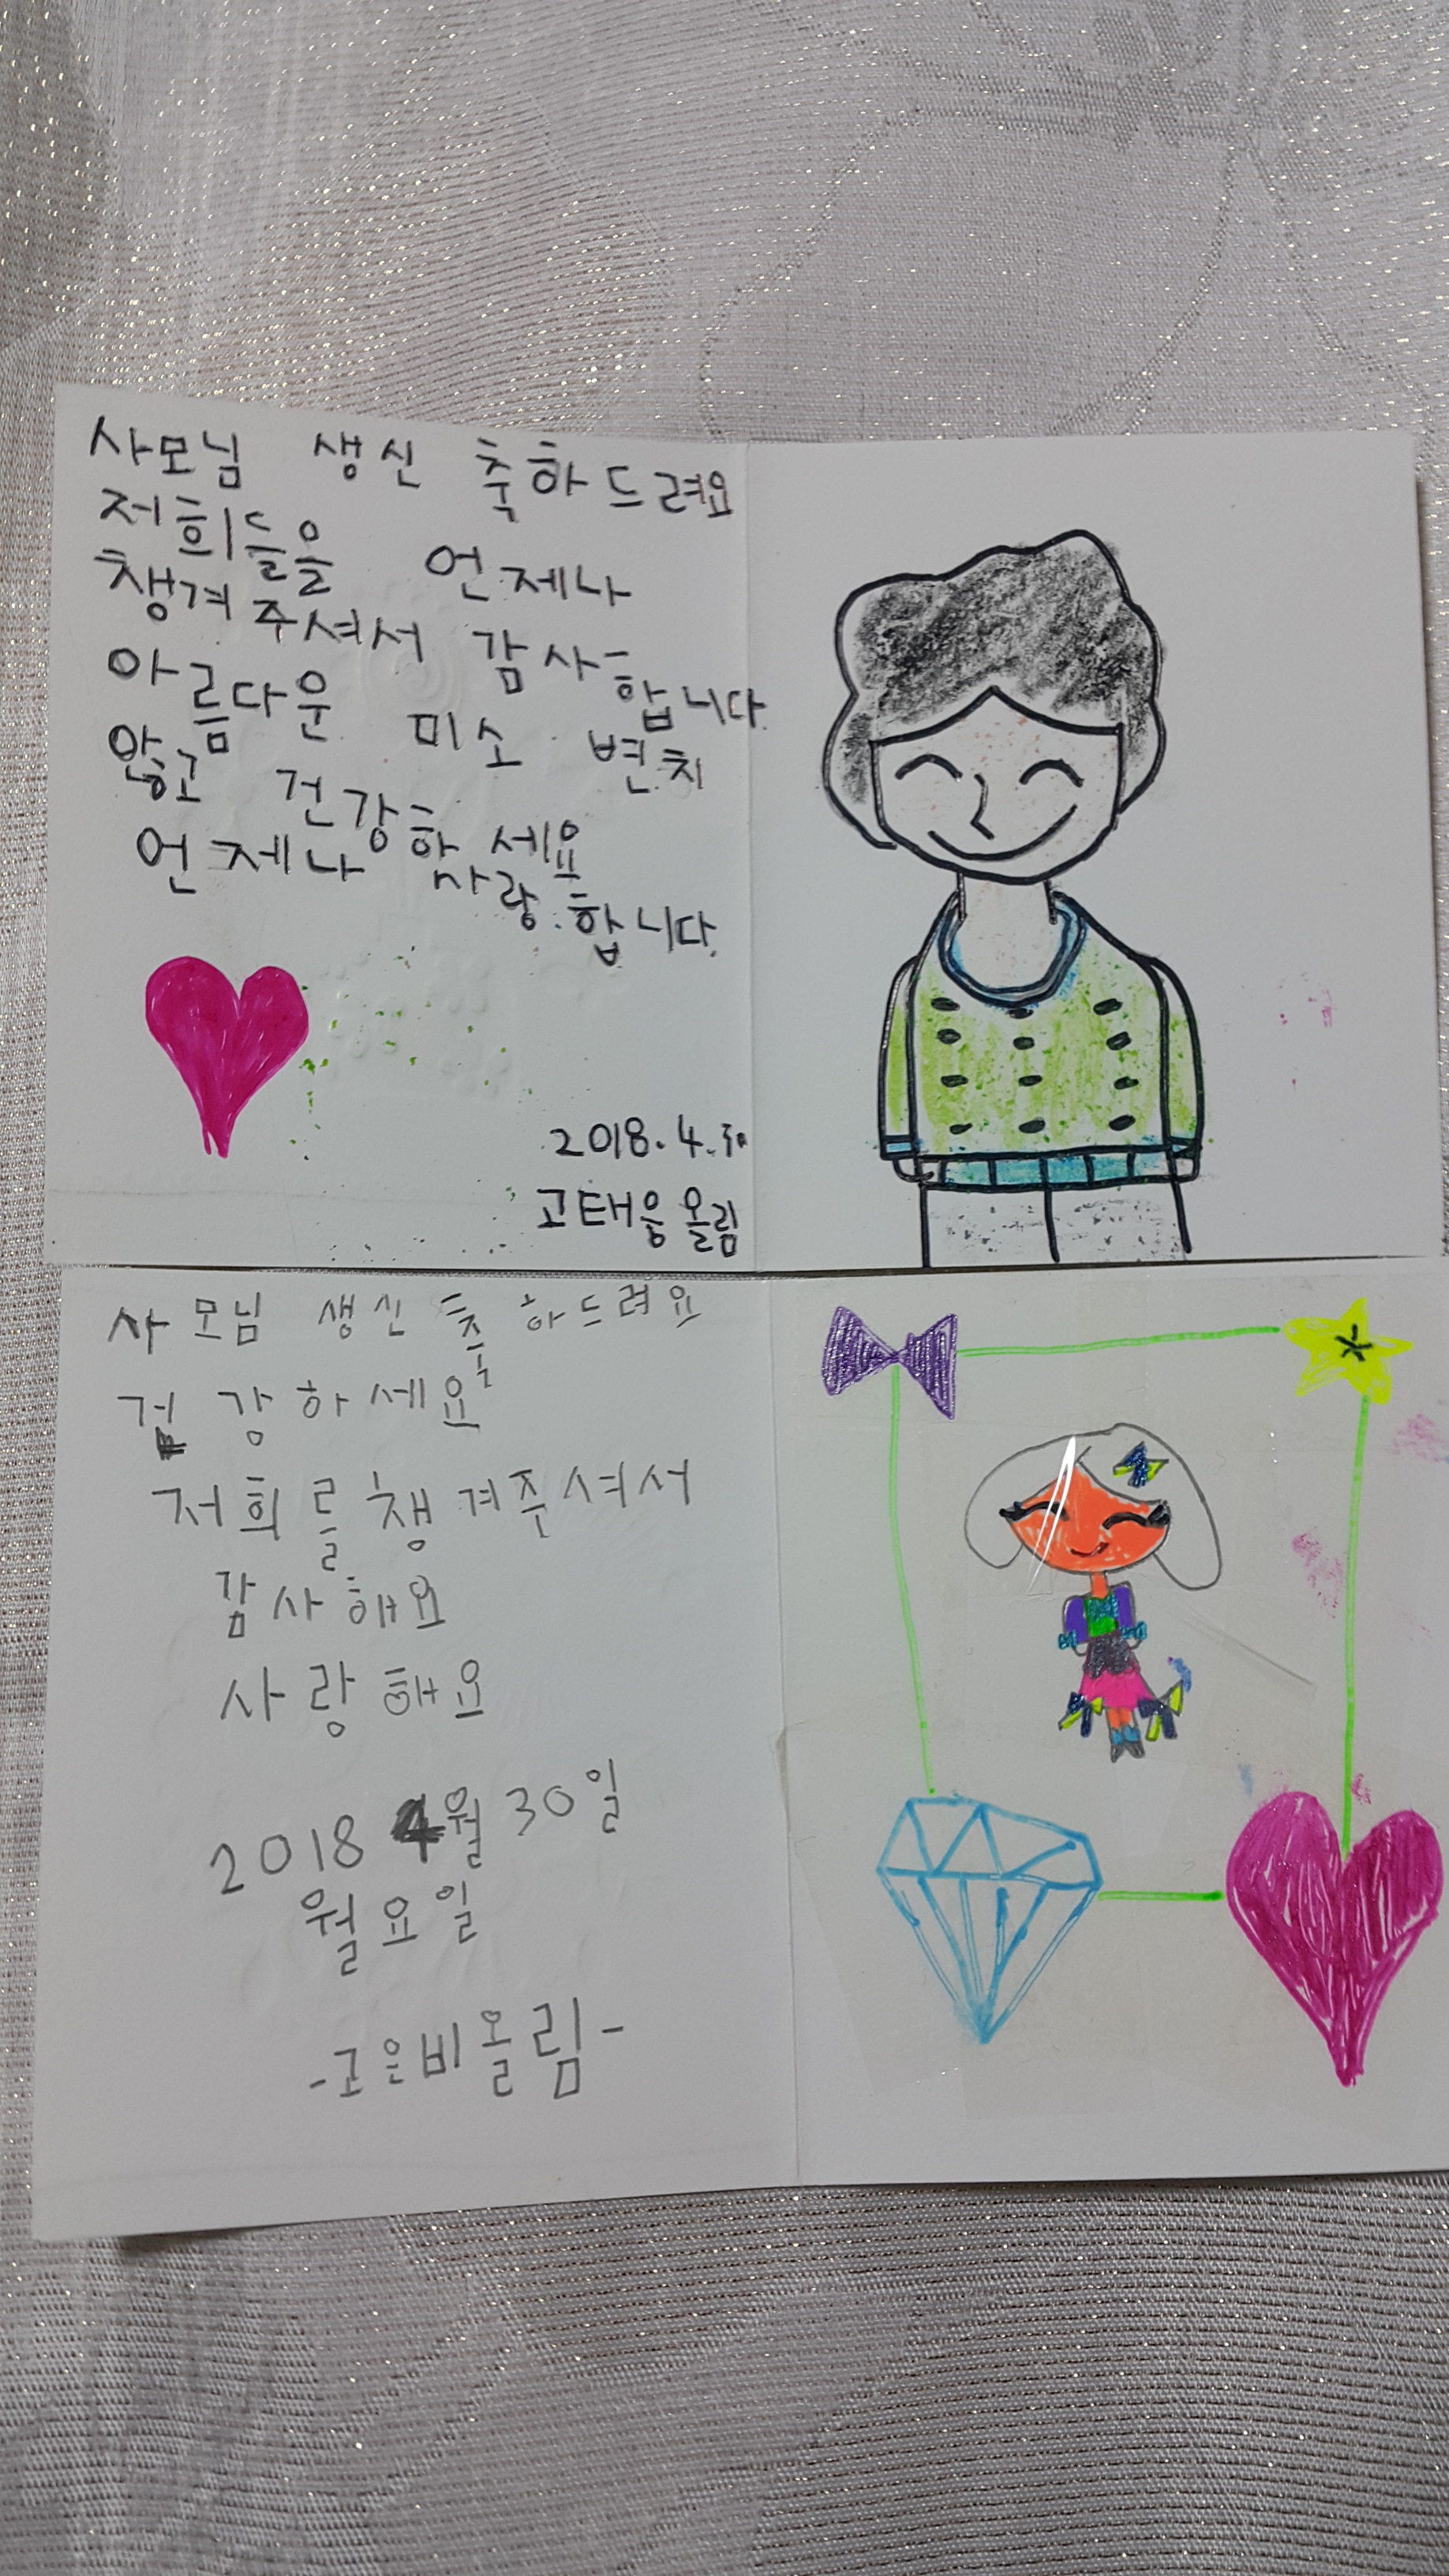 사모님 생신 축하드려요
저희들을 언제나
챙겨주셔서 감사합니다.
아름다운 미소 변치
않고 건강하세요
언제나 사랑합니다.
2018. 4. 30
고태웅 올림
사모님 생신 축하드려요
건강하세요
저희를 챙겨주셔서
감사해요
사랑해요
2018 4월 30일
월요일
-고은비올림-